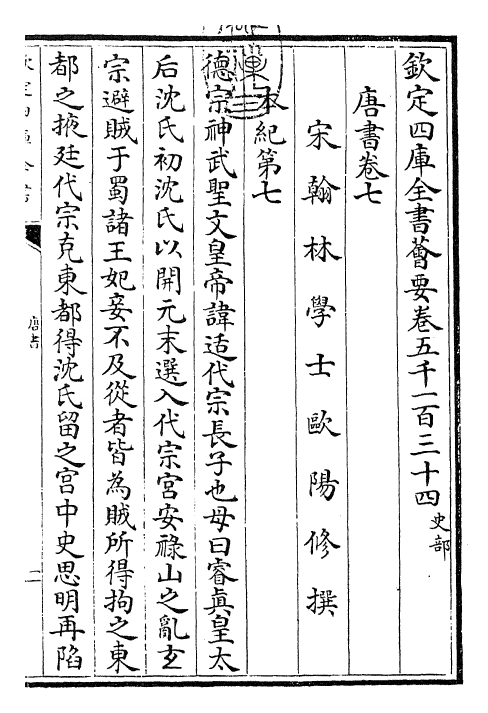 欽定四庫全書薈要卷五千一百三十四 史部
唐書卷七
宋翰林學士歐陽修撰
本紀第七
德宗神武聖文皇帝諱适代宗長子也母曰睿真皇太
后沈氏初沈氏以開元末選入代宗宮安祿山之亂玄
宗避賊于蜀諸王妃妾不及從者皆為賊所得拘之東
都之掖廷代宗克東都得沈氏留之宮中史思明再陷
唐書